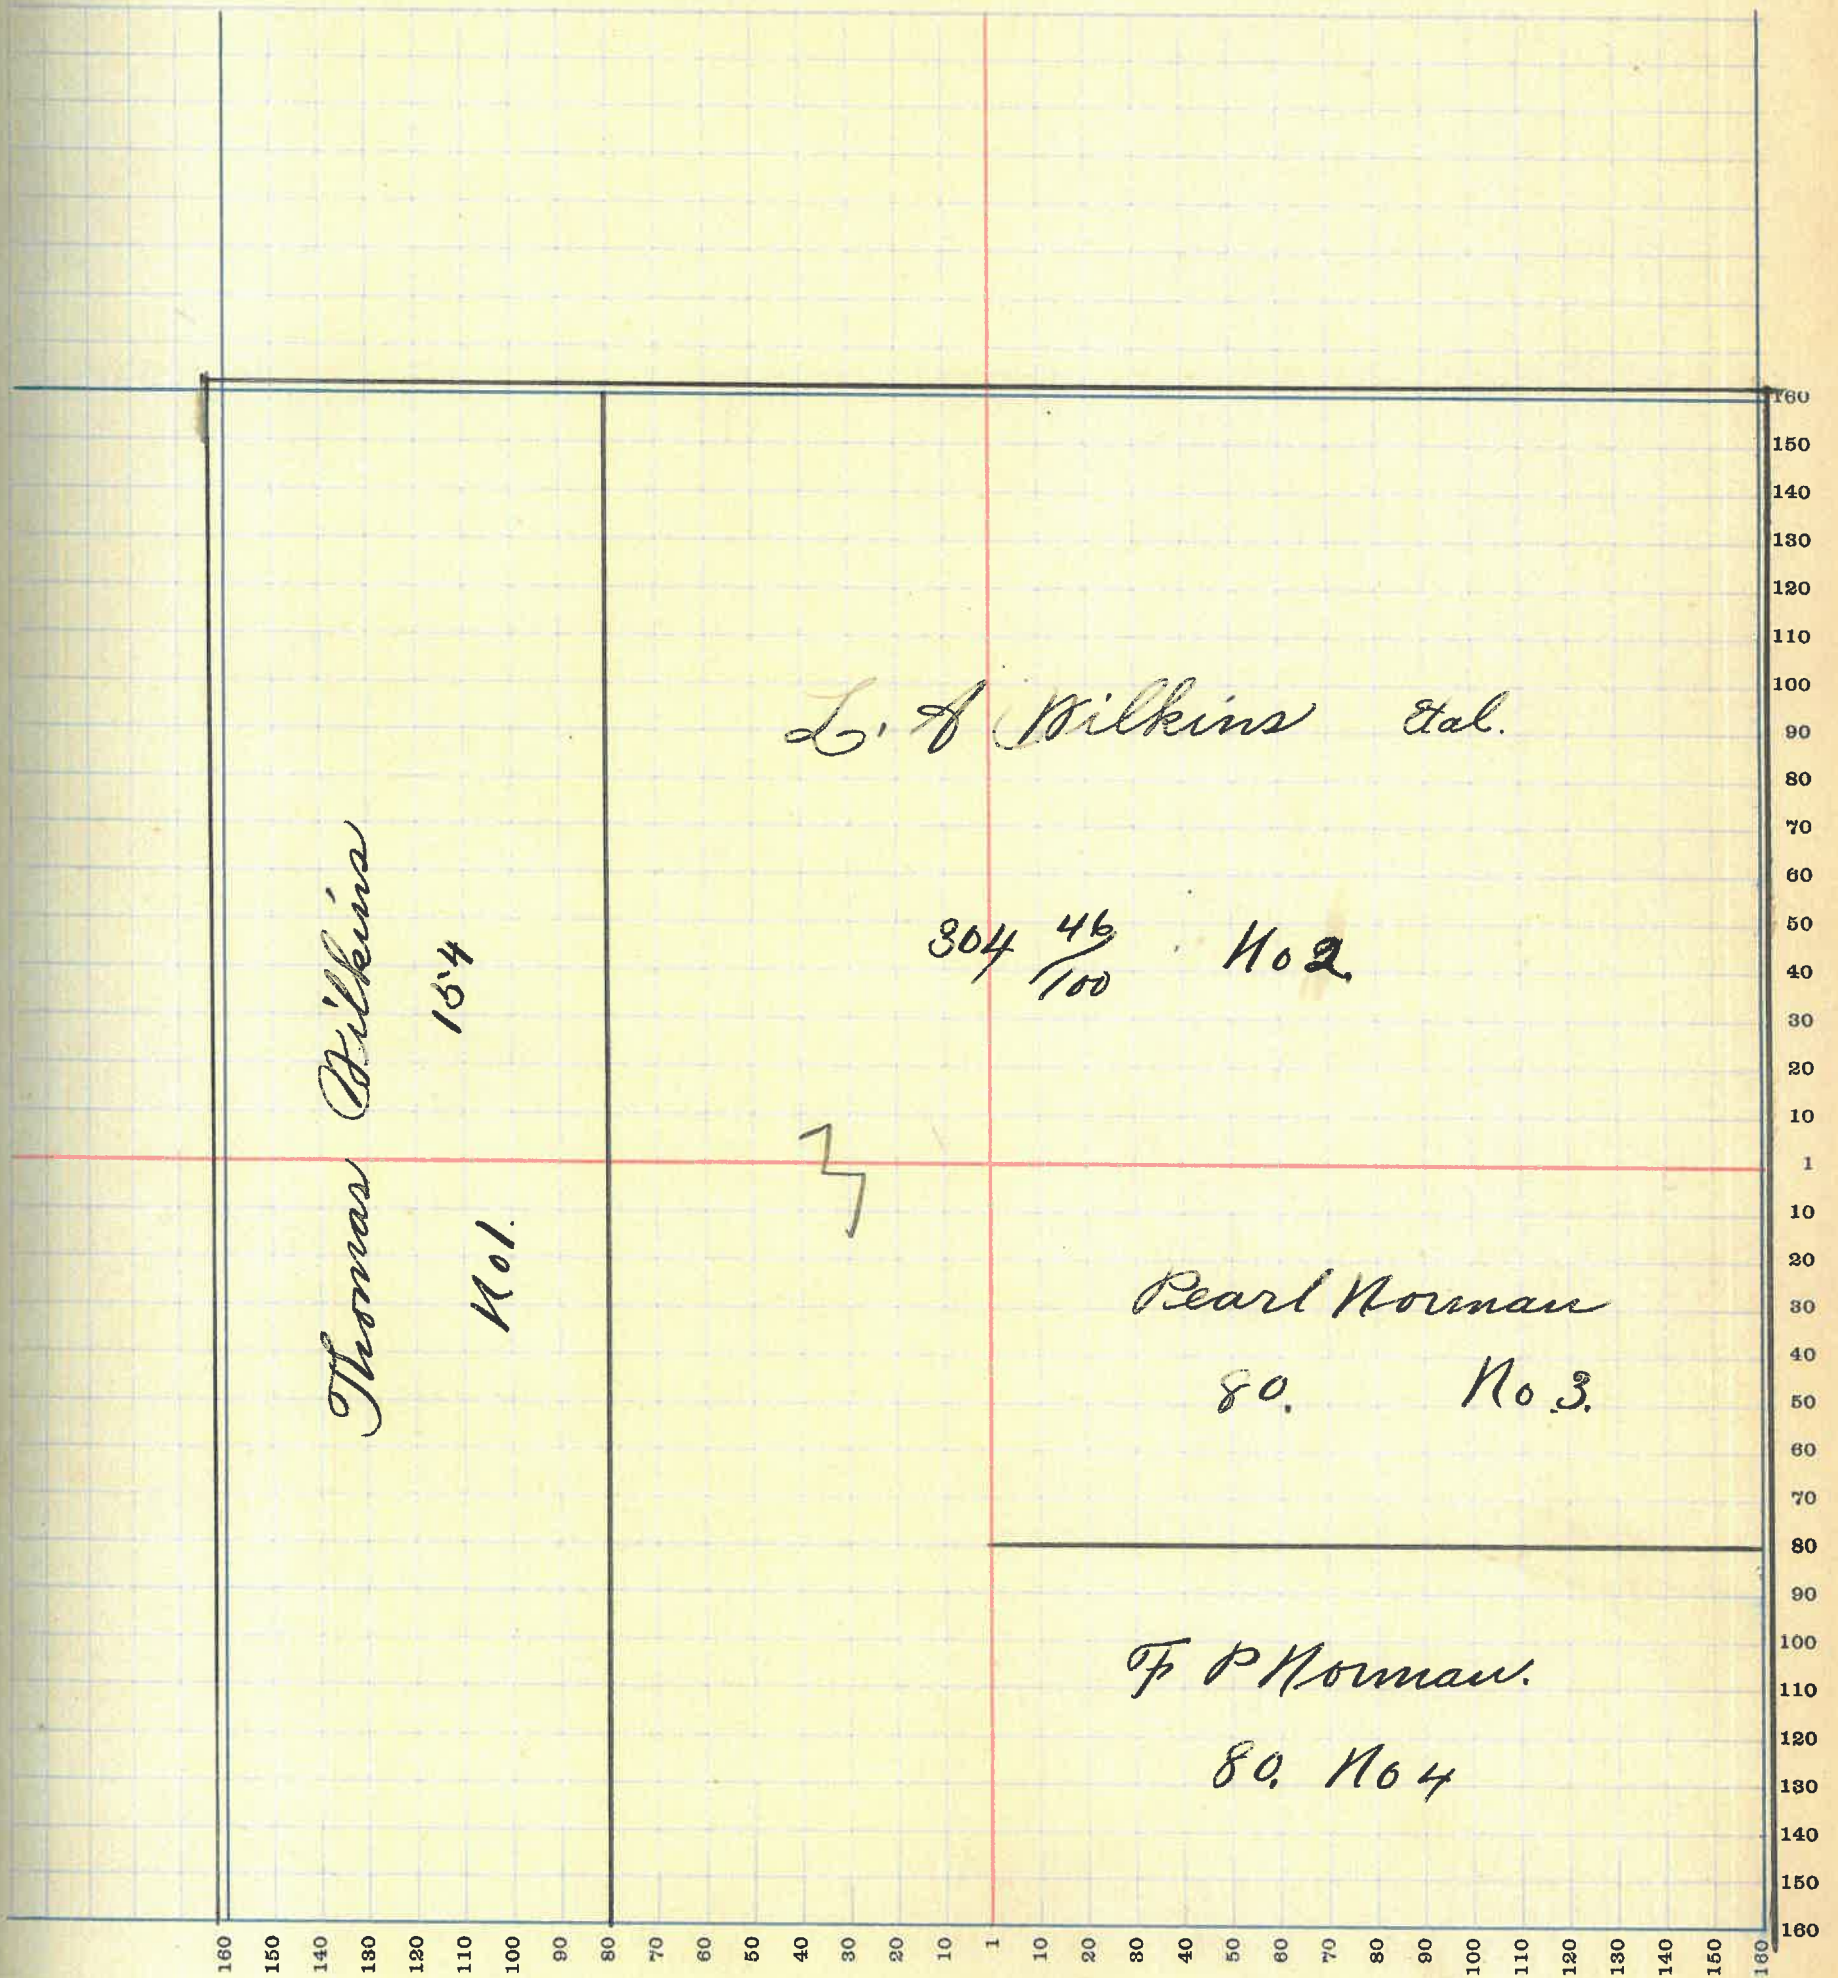 Thomas Wilkins
154
No 1.
L. A Wilkins Etal.
304 46/100 No 2.
Pearl Norman
80. No 3.
F P Norman.
80. No 4
160
150
140
130
120
110
100
90
80
70
60
50
40
30
20
10
1
10
20
30
40
50
60
70
80
90
100
110
120
130
140
150
160
160 150 140 130 120 110 100 90 80 70 60 50 40 30 20 10 1 10 20 30 40 50 60 70 80 90 100 110 120 130 140 150 160